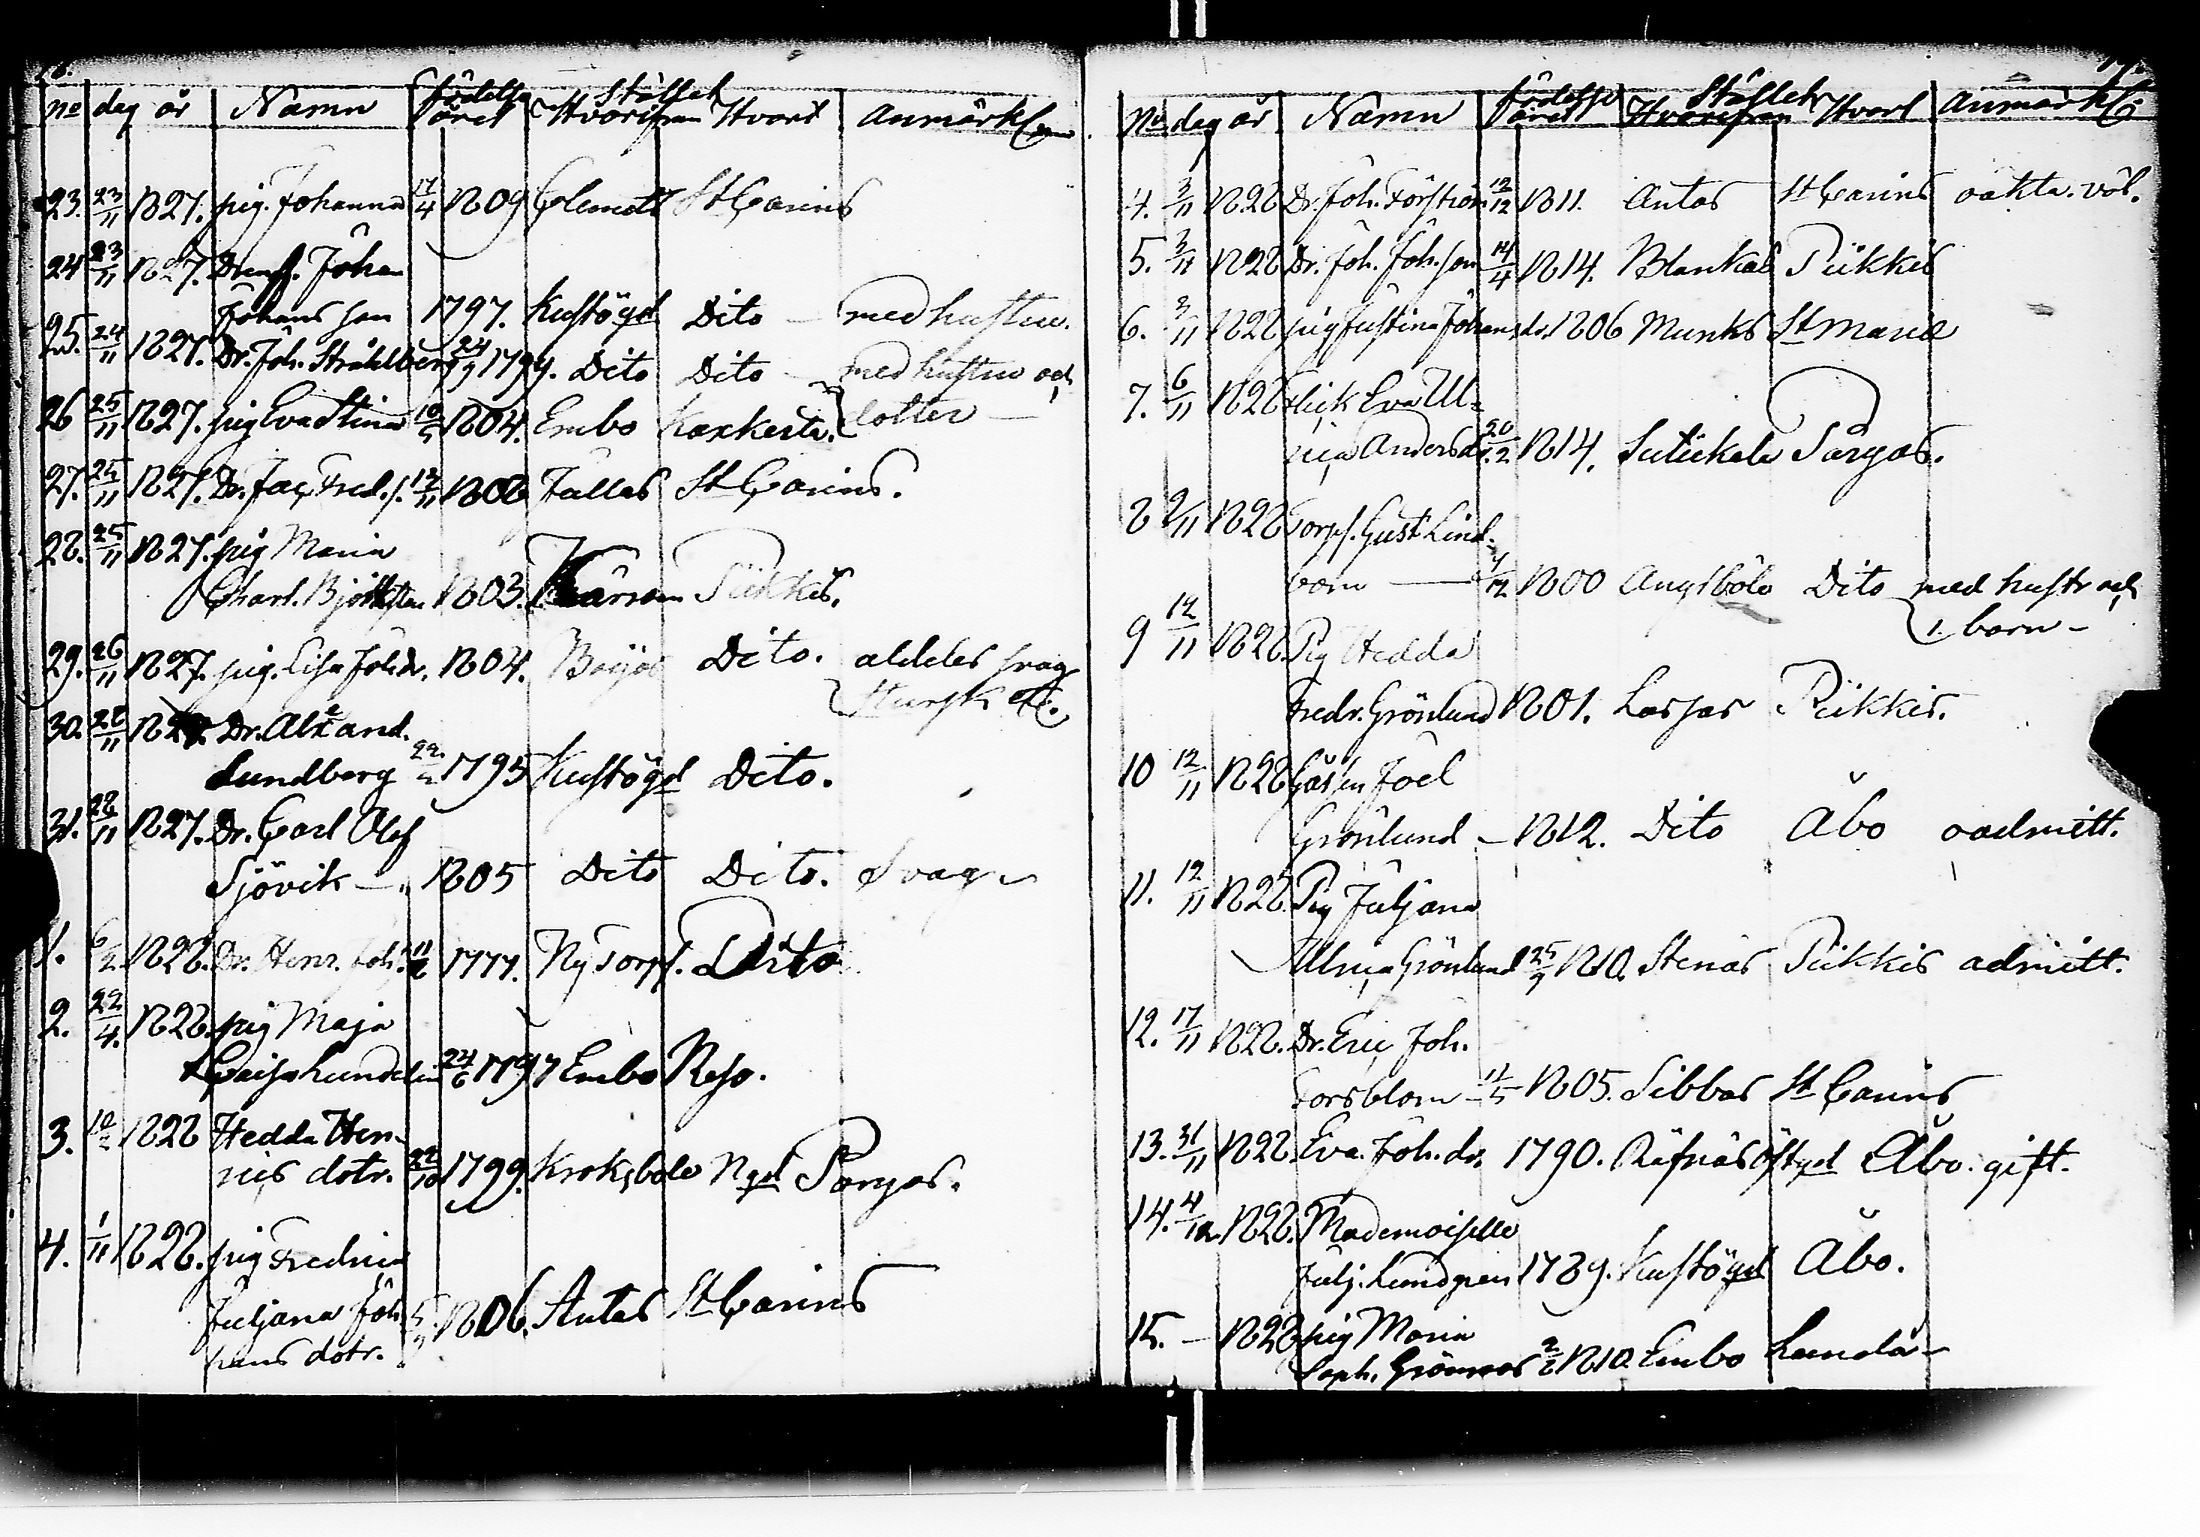 16.
no dag år Namn födelse året Stället Hvarifrån Hvart Anmärkn
23. 23/11 1827. pig. Johanna 17/4 1809 Clemets St Carins
24 23/11 1827. Dr Joha
Johansson 1797. Kustögd Dito – med hustru.
25. 24/11 1827. Dr. Joh. Stråhlberg 24/9 1799. Dito Dito – med hustru och
26 25/11 1827. pig Eva Stina 10/5 1804. Embo Kaxkerta. dotter –
27. 25/11 1827. Dr. Jac. Fred. s. 12/11 1808 Jullas St Carins.
28. 25/11 1827. pig Maria
Charl. Björksten 1803. Kärsam Piikkis.
29. 26/11 1827. pig. Lisa Joh.dr. 1804. Böijas Dito. aldeles svag
30. 28/11 1827. Dr. Alexand.
Lundberg 22 1795 Kustögd Dito.
31. 28/11 1827. Dr. Carl Olof
Sjövik –. 1805 Dito Dito. Svag –
1. 6/2 1828. Dr. Henr. Joh. 1777. Ny Torp. Dito
2. 22/4. 1828. pig Maja
Caisa Lundelin 24/6 1797 Embo Reso.
3. 1828 Hedda Hen-
rics dotr. 22/10 1799. Kroksbole Ngd Pargas.
4. 1/11 1828. pig Fredrica
Juljana Joh 5/9 1806. Antas St Carins
hans dotr.
17.
No dag år Namn födelse året Stället Hvarifrån Hvart Anmärk
4. 3/11 1828 Dr. Joh. Förström 12/12 1811. Antas St Carins oäkta. väl.
5. 3/11 1828 Dr. Joh. Joh.son 14/4 1814. Blankas Piikkis
6. 3/11 1828 pig Justina Johansdr. 1806 Munks St Mariæ
7. 6/11 1828 flick Eva Ul-
rica Andersd. 20/12 1814. Sutickala Pargas.
8 9/11 1828 Torp. Gust Lind-
bom – 1800 Angsböle Dito med hustr och
1. barn –
9 12/11 1828. Pig Hedda
Fredr. Grönlund 1801. Lassas Piikkis.
10 12/11 1828 Gåssen Joel
Grönlund – 1812. Dito Åbo oadmitt.
11. 12/11 1828. Pig Juljana
Ulrica Grönlund 25/9 1810. Stenas Piikkis admitt.
12. 17/11 1828. Dr. Eric Joh.
Forsblom – 11/5 1805. Sibbas St Carins
13. 31/11 1828. Eva. Joh. dr. 1790. Räfnäs Östgd Åbo. gift.
14. 4/12. 1828. Mademoiselle
Julj. Lundgren 1789. Kustögd Åbo.
15. – 1828 pig Maria
Soph. Grönroos 2/2 1810. Embo Lundå –